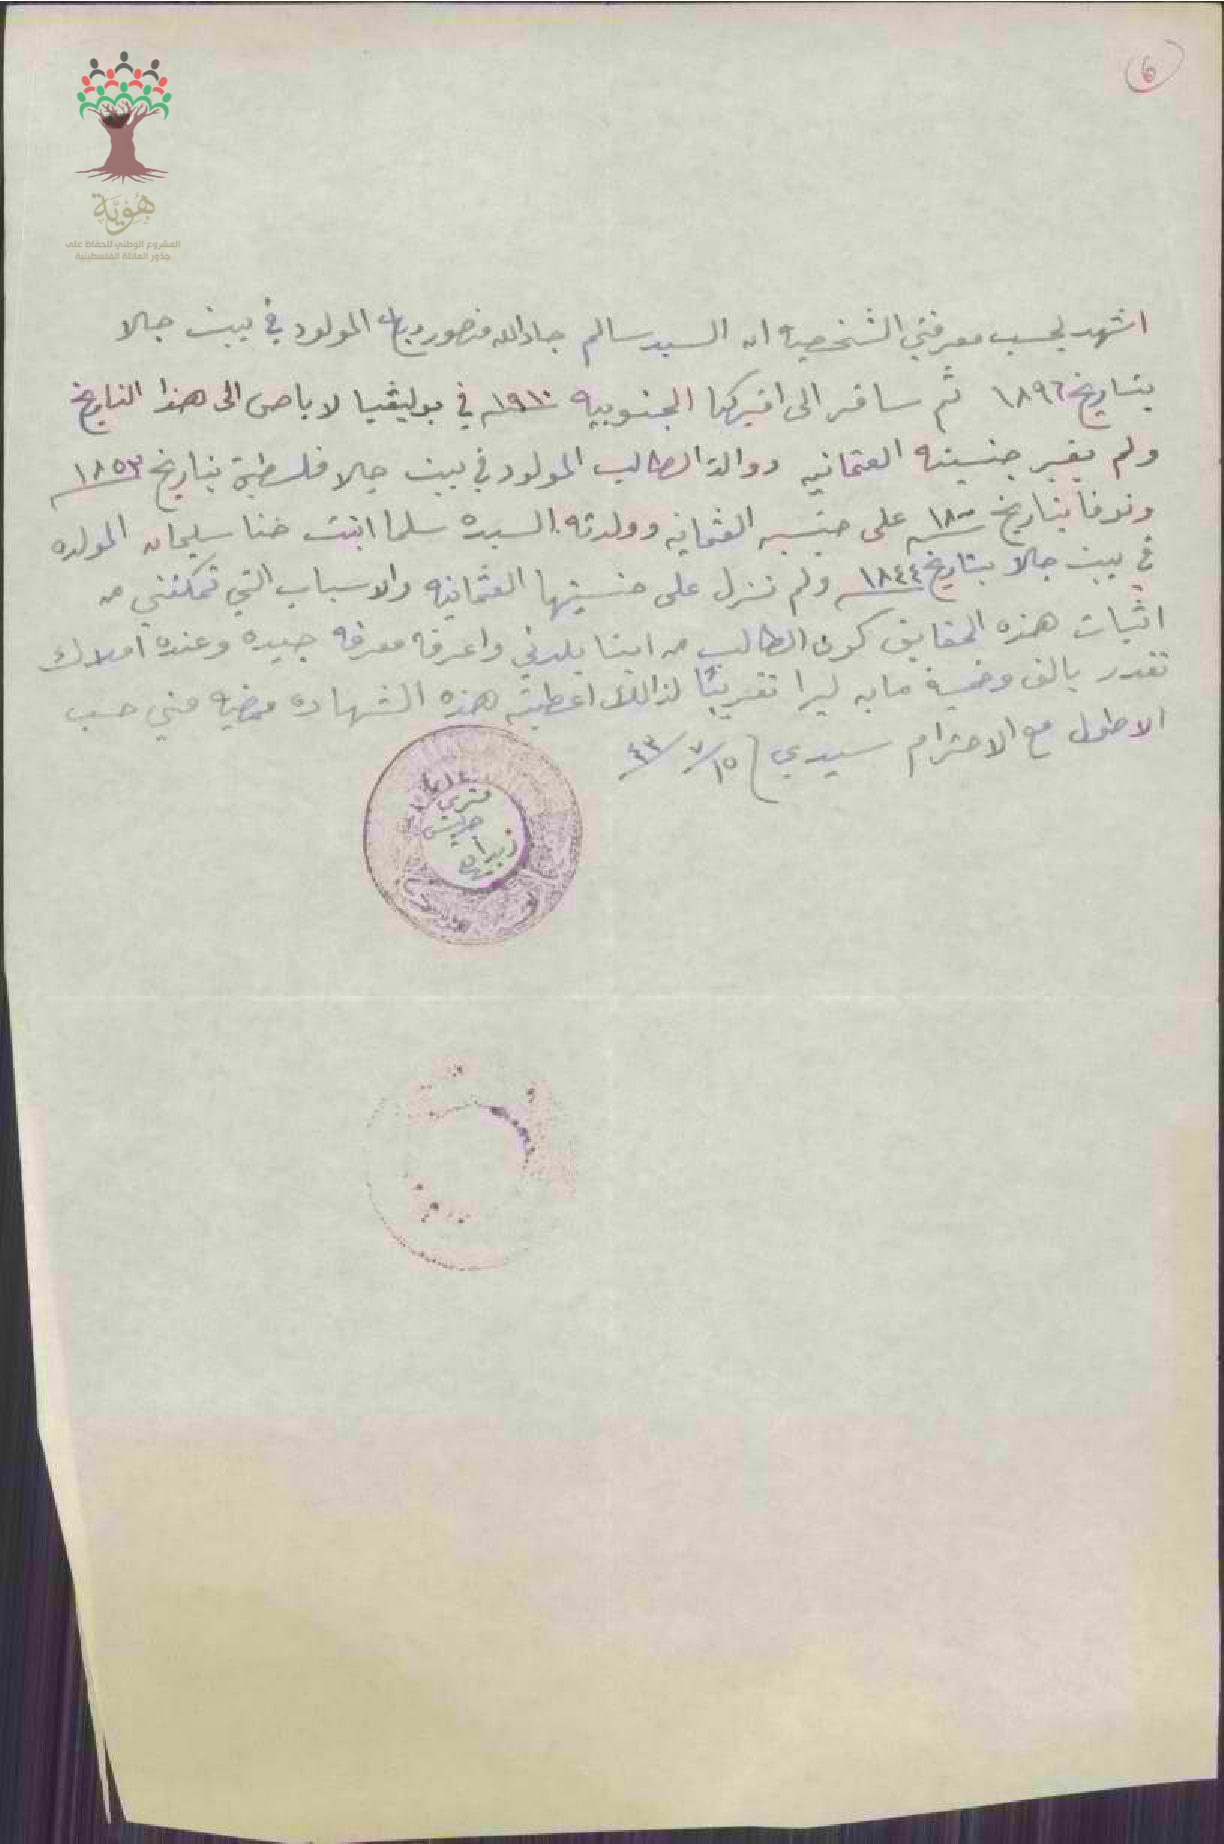 6
هُوِيَّة
المشروع الوطني للحفاظ على
جذور العائلة الفلسطينية
اشهد بحسب معرفتي الشخصيه ان السيد سالم جادالله منصور المولود في بيت جالا
بتاريخ ١٨٩٦ ثم سافر الى اميركا الجنوبيه ١٩١٠ في بوليفيا لاباص الى هذا التاريخ
ولم يغير جنسيته العثمانيه ووالد الطالب المولود في بيت جالا فلسطين بتاريخ ١٨٥٣
وتوفا بتاريخ على جنسيه العثمانيه وولدته السيده سلما ابنت حنا سليمان المولده
في بيت جالا بتاريخ ١٨٤٤ ولم تنزل على جنسيتها العثمانيه والاسباب التي تمكنني من
اثبات هذه الحقايق كون الطالب من ابنا بلدتي واعرفه معرفه جيده وعنده املاك
تقدر بالف وخمسة مايه ليرا تقريبًا لذالك اعطيته هذه الشهاده ممضيه مني حسب
الاصول مع الاحترام سيدي ١٥/٧/٤٣